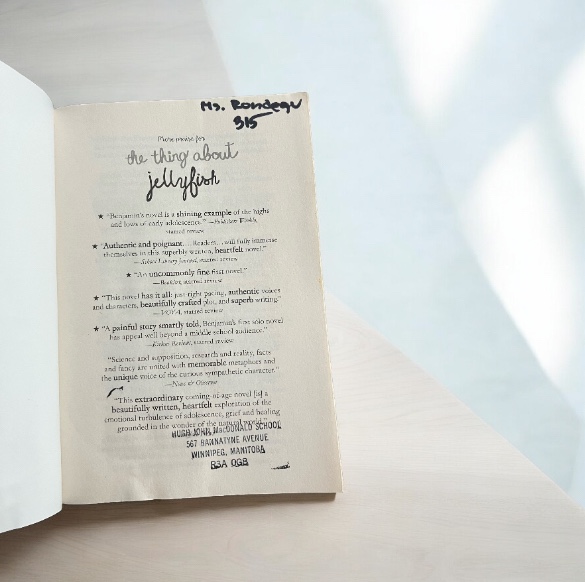 Ms. Rondeau
315
More praise for
the thing about
jellyfish
★ "Benjamin's novel is a shining example of the highs
and lows of early adolescence." —Publishers Weekly,
starred review
★ "Authentic and poignant.... Readers... will fully immerse
themselves in this superbly written, heartfelt novel."
—School Library Journal, starred review
★ "An uncommonly fine first novel."
—Booklist, starred review
★ "This novel has it all: just right pacing, authentic voices
and characters, beautifully crafted plot, and superb writing."
—VOYA, starred review
★ "A painful story smartly told, Benjamin's first solo novel
has appeal well beyond a middle school audience."
—Kirkus Reviews, starred review
"Science and supposition, research and reality, facts
and fancy are united with memorable metaphors and
the unique voice of the curious sympathetic character."
—News & Observer
"This extraordinary coming-of-age novel [is] a
beautifully written, heartfelt exploration of the
emotional turbulence of adolescence, grief and healing
grounded in the wonder of the natural world."
HUGH JOHN MacDONALD SCHOOL
567 BANNATYNE AVENUE
WINNIPEG, MANITOBA
R3A 0G8